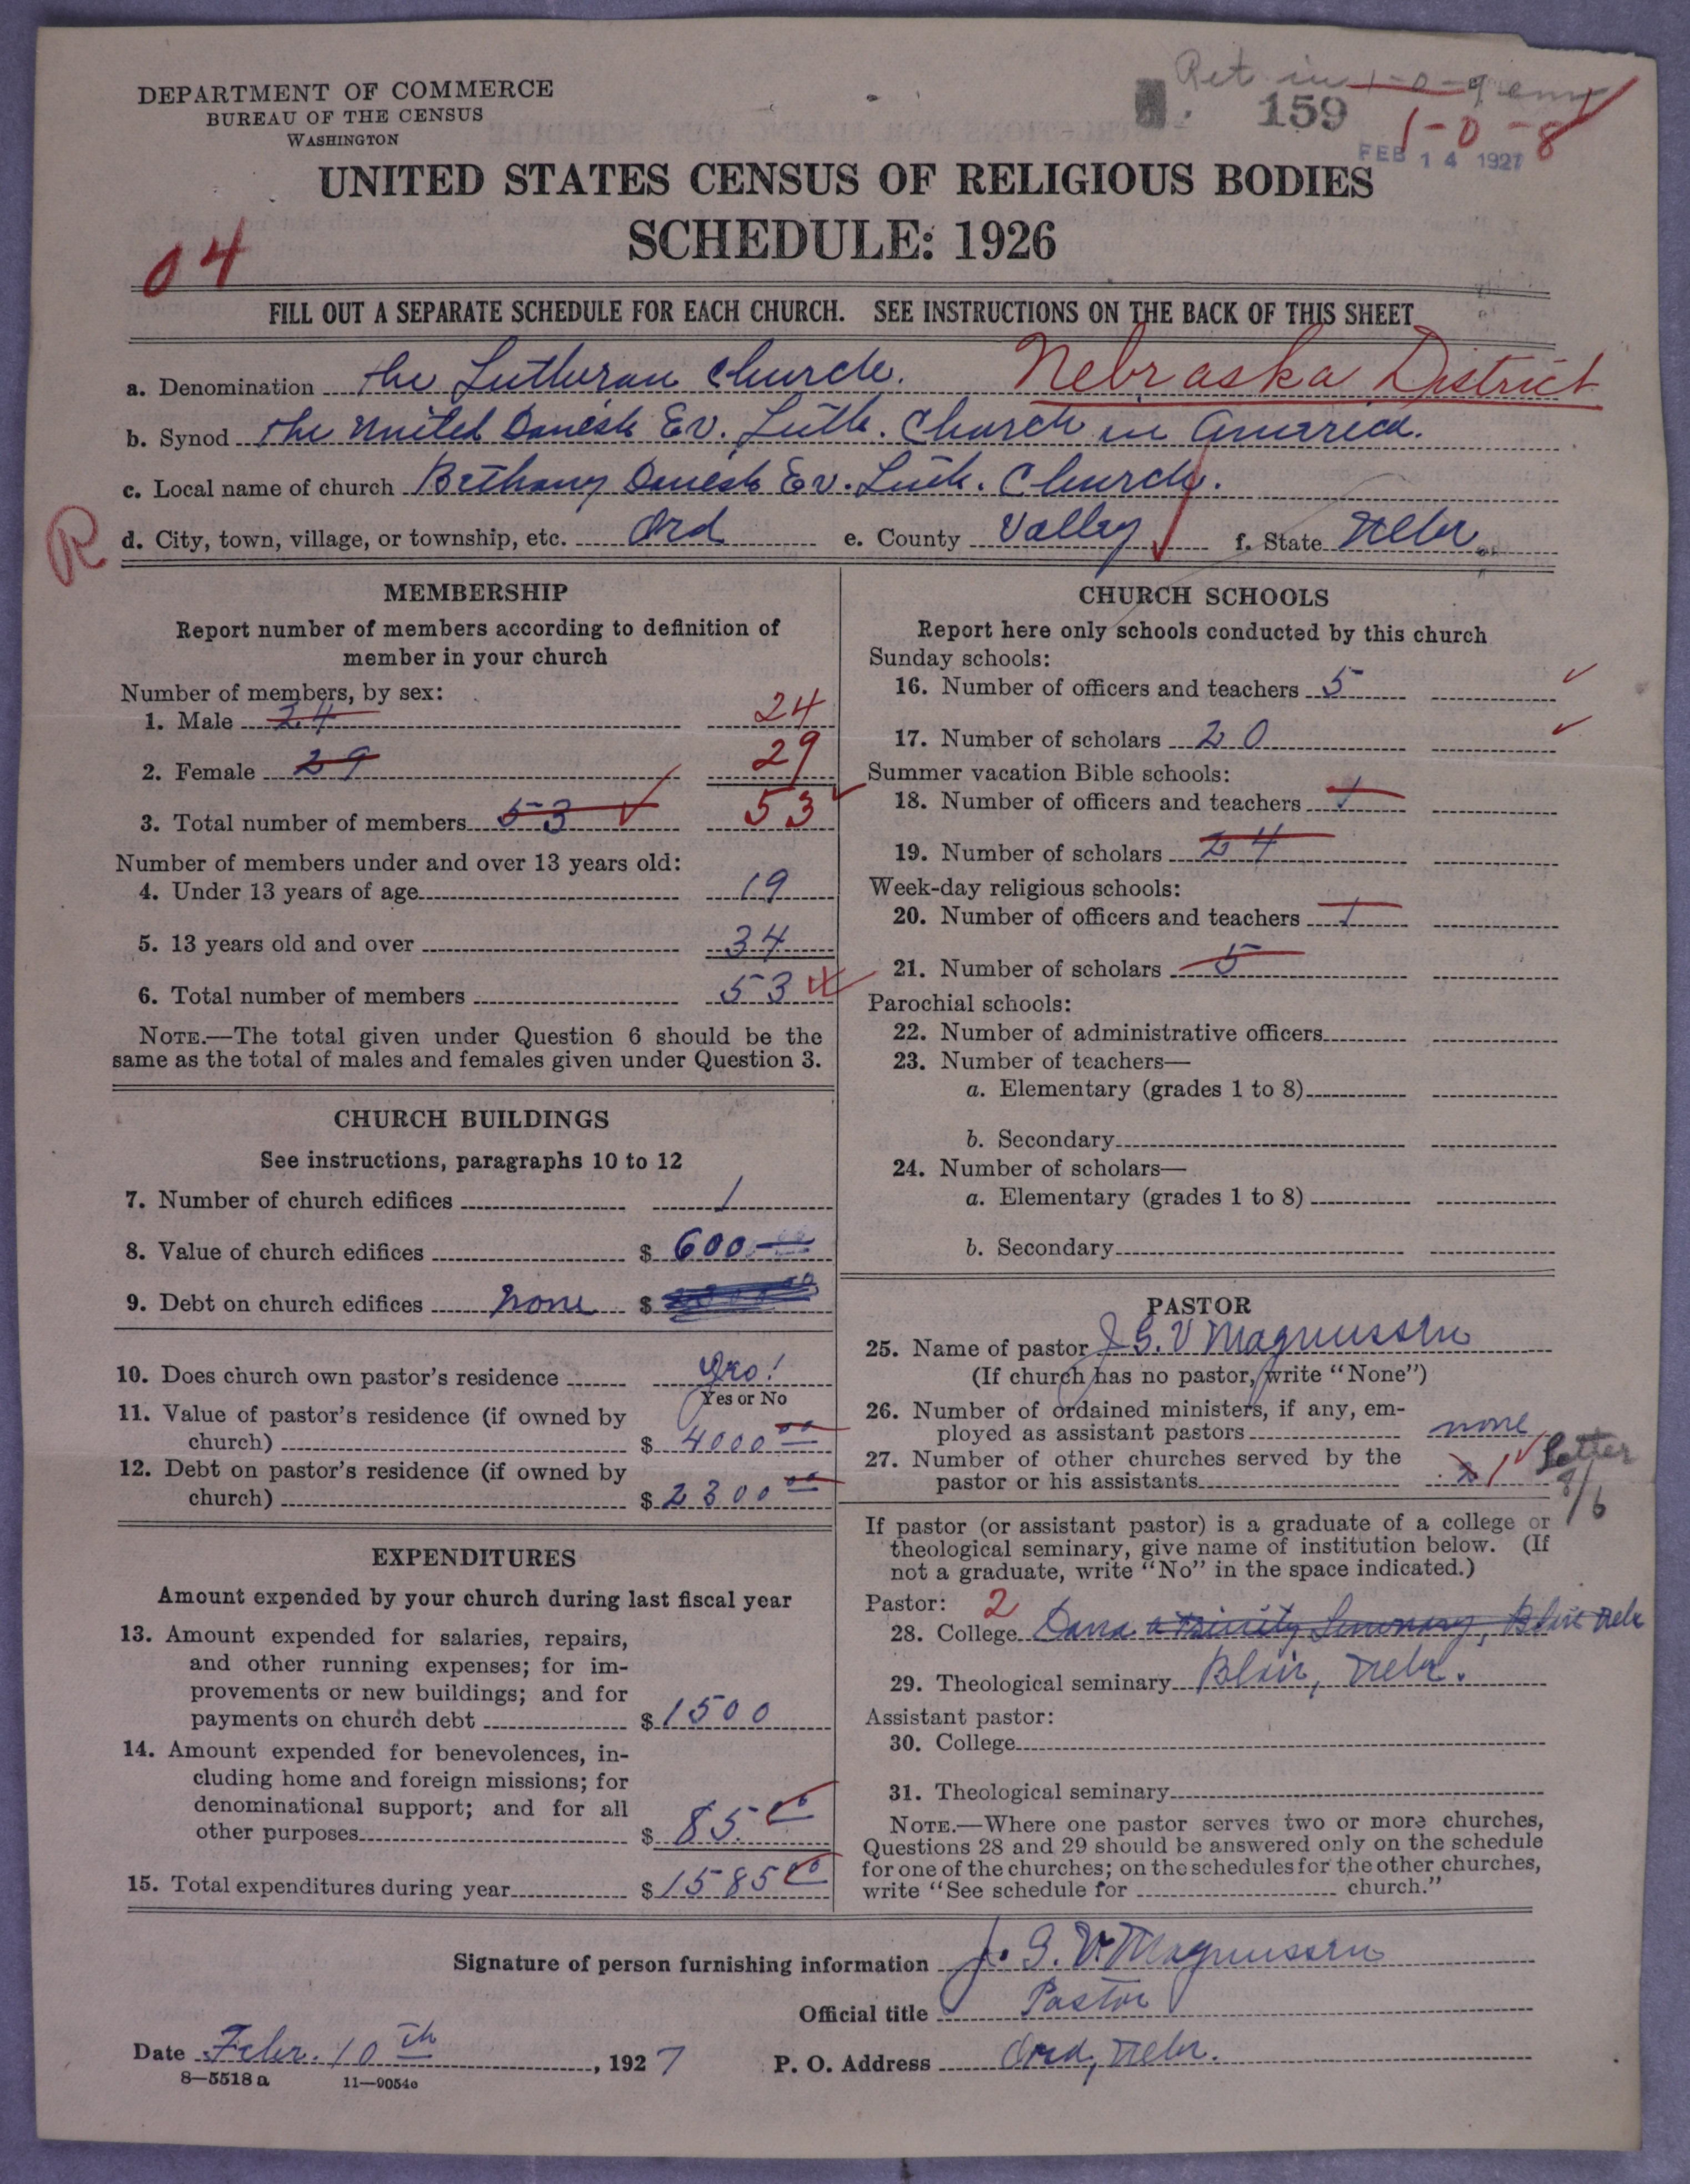 Ret in
159
1-0-8
FEB 14 1927
DEPARTMENT OF COMMERCE
BUREAU OF THE CENSUS
WASHINGTON
UNITED STATES CENSUS OF RELIGIOUS BODIES
SCHEDULE: 1926
04
FILL OUT A SEPARATE SCHEDULE FOR EACH CHURCH. SEE INSTRUCTIONS ON THE BACK OF THIS SHEET
a. Denomination The Lutheran Church. Nebraska District
b. Synod The United Danish Ev. Luth. Church in America.
c. Local name of church Bethany Danish Ev. Luth. Church.
R
d. City, town, village, or township, etc. Ord e. County Valley f. State Nebr.
MEMBERSHIP
Report number of members according to definition of
member in your church
Number of members, by sex:
1. Male 24 24
2. Female 29 29
3. Total number of members 53 53
Number of members under and over 13 years old:
4. Under 13 years of age 19
5. 13 years old and over 34
6. Total number of members 53
NOTE.—The total given under Question 6 should be the
same as the total of males and females given under Question 3.
CHURCH BUILDINGS
See instructions, paragraphs 10 to 12
7. Number of church edifices 1
8. Value of church edifices $ 600
9. Debt on church edifices none $
10. Does church own pastor's residence yes!
Yes or No
11. Value of pastor's residence (if owned by
church) $ 4000 00
12. Debt on pastor's residence (if owned by
church) $ 2300 00
EXPENDITURES
Amount expended by your church during last fiscal year
13. Amount expended for salaries, repairs,
and other running expenses; for im-
provements or new buildings; and for
payments on church debt $ 1500
14. Amount expended for benevolences, in-
cluding home and foreign missions; for
denominational support; and for all
other purposes $ 85.00
15. Total expenditures during year $ 1585 00
CHURCH SCHOOLS
Report here only schools conducted by this church
Sunday schools:
16. Number of officers and teachers 5
17. Number of scholars 20
Summer vacation Bible schools:
18. Number of officers and teachers 1
19. Number of scholars 24
Week-day religious schools:
20. Number of officers and teachers 1
21. Number of scholars 5
Parochial schools:
22. Number of administrative officers
23. Number of teachers—
a. Elementary (grades 1 to 8)
b. Secondary
24. Number of scholars—
a. Elementary (grades 1 to 8)
b. Secondary
PASTOR
25. Name of pastor J. G. V Magnussen
(If church has no pastor, write "None")
26. Number of ordained ministers, if any, em-
ployed as assistant pastors none
27. Number of other churches served by the
pastor or his assistants 1 Letter
9/6
If pastor (or assistant pastor) is a graduate of a college or
theological seminary, give name of institution below. (If
not a graduate, write "No" in the space indicated.)
Pastor: 2
28. College Dana & Trinity Seminary, Blair Nebr
29. Theological seminary Blair, Nebr.
Assistant pastor:
30. College
31. Theological seminary
NOTE.—Where one pastor serves two or more churches,
Questions 28 and 29 should be answered only on the schedule
for one of the churches; on the schedules for the other churches,
write "See schedule for church."
Signature of person furnishing information J. G. V. Magnussen
Official title Pastor
Date Febr. 10th, 1927 P. O. Address Ord, Nebr.
8—5518 a 11—9054c